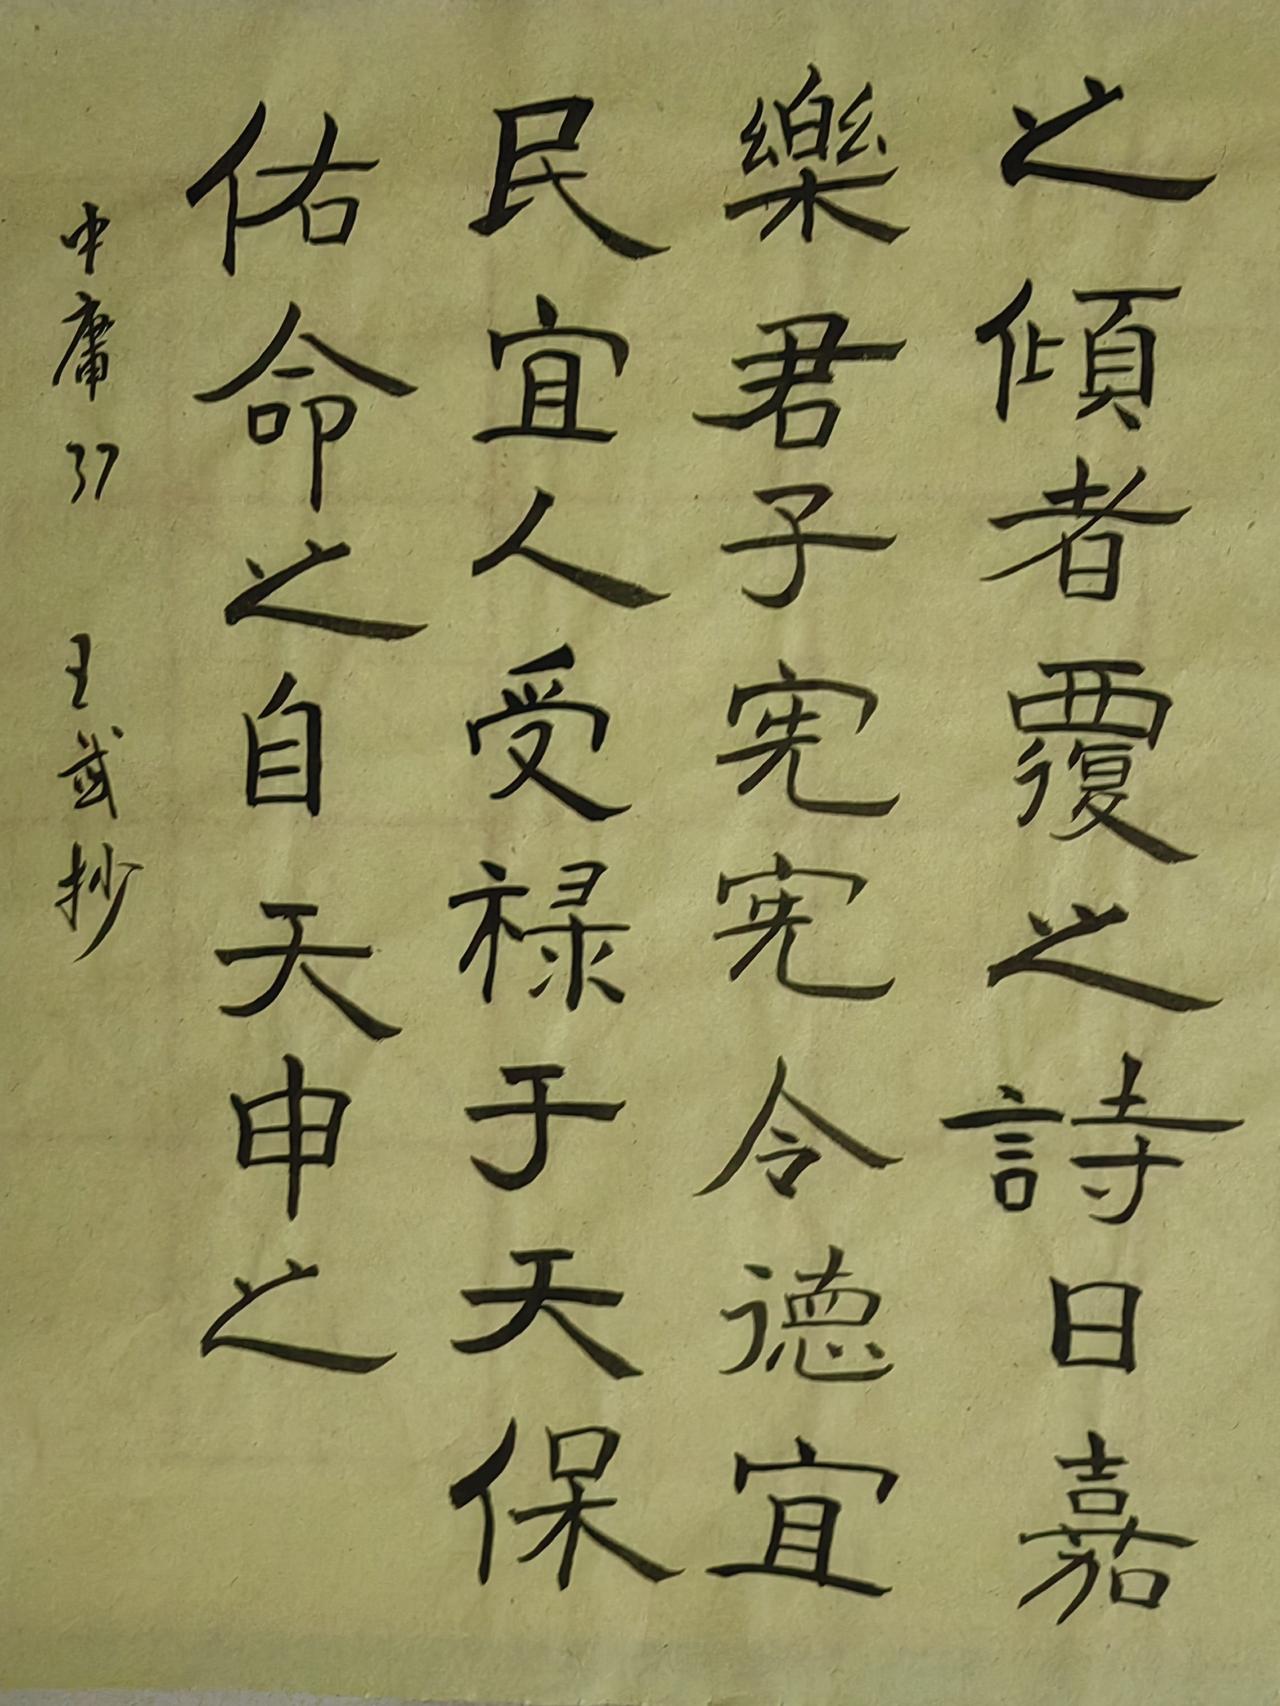 之傾者覆之詩曰嘉
樂君子宪宪令德宜
民宜人受禄于天保
佑命之自天申之
中庸37 王 抄